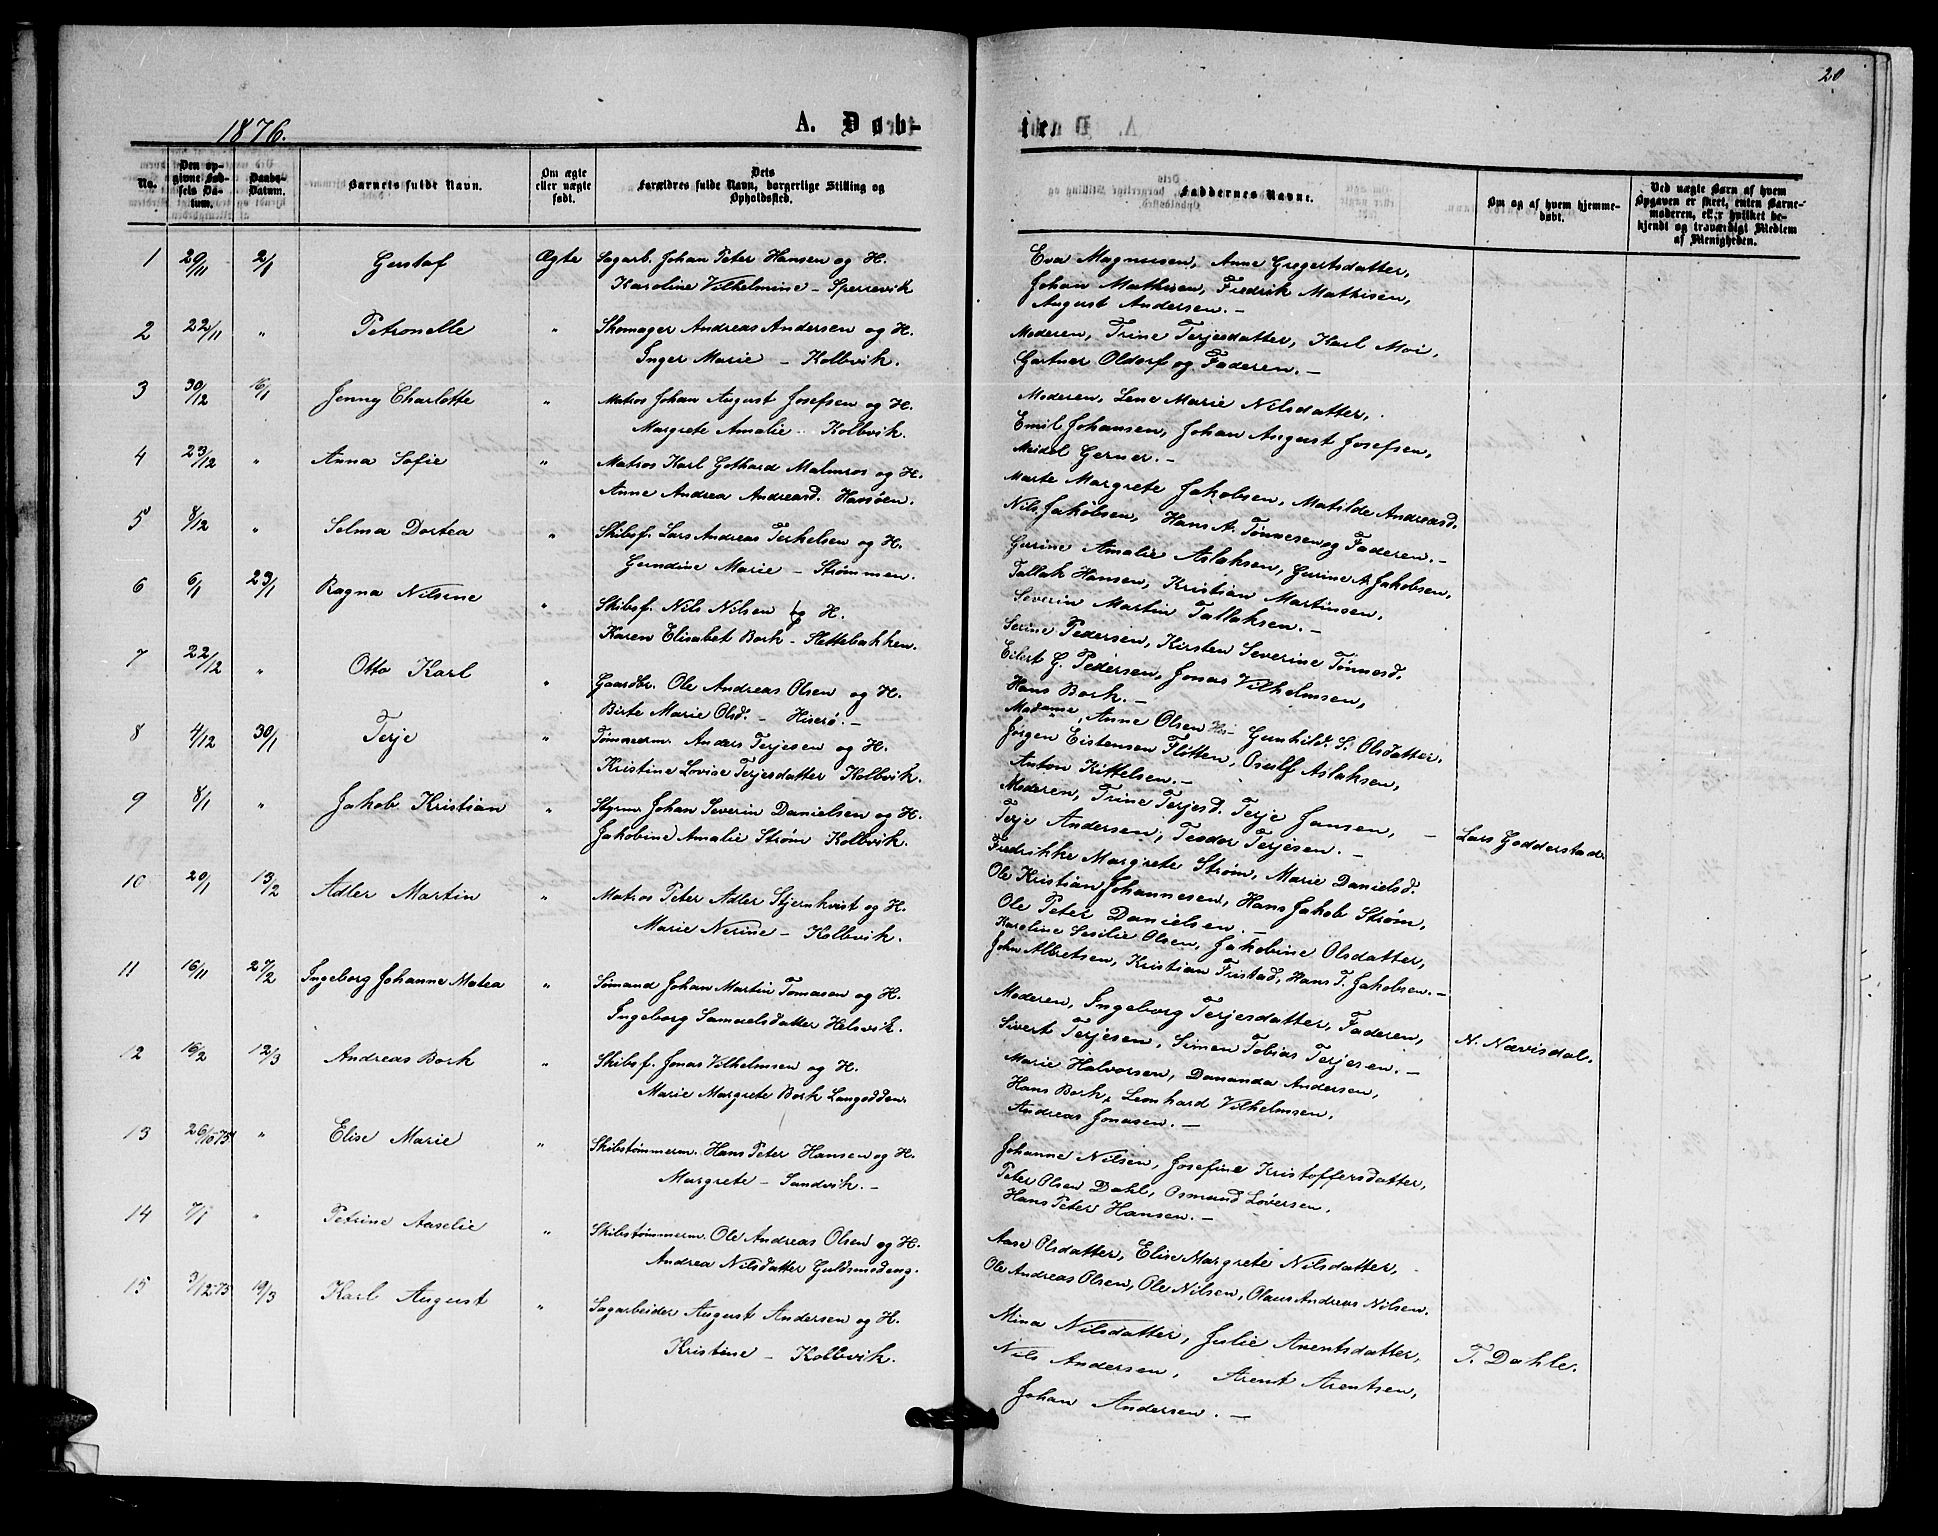 20
1876.
A. Døb-
te.
No.
Den op-
givne Fød-
sels Da-
tum.
Daabs-
Datum.
Barnets fulde Navn.
Om ægte
eller uægte
født.
Dets
Forældres fulde Navn, borgerlige Stilling og
Opholdssted.
Faddernes Navne.
Om og af hvem hjemme-
døbt.
Ved uægte Børn af hvem
Opgaven er skeet, enten Barne-
moderen, eller hvilket be-
kjendt og troværdigt Medlem
af Menigheden.
1 29/11 2/1 Gustaf Ægte Sagarb. Johan Peter Hansen og H.
Karoline Vilhelmine - Sperrevik
Eva Magnussen, Anne Gregertsdatter,
Johan Mathisen, Fredrik Mathisen,
August Andersen. -
2 22/11 " Petronelle " Skomager Andreas Andersen og H.
Inger Marie - Kolbvik.
Moderen, Trine Terjesdatter, Karl Moi,
Gartner Oldorf og Faderen. -
3 30/12 16/1 Jenny Charlotte " Matros Johan August Josefsen og H.
Margrete Amalie - Kolbvik.
Moderen, Lene Marie Nilsdatter,
Emil Johansen, Johan August Josefsen,
Meidel Gerner. -
4 23/12 " Anna Sofie " Matros Karl Gothard Malmros og H.
Anne Andrea Andreasd. Hansøen.
Marte Margrete Jakobsen, Matilde Andreasd.
Nils Jakobsen, Hans A. Tønnesen og Faderen. -
5 8/12 " Selma Dortea " Skibsf. Lars Andreas Terkelsen og H.
Gundine Marie - Strømmen.
Gurine Amalie Aslaksen, Gurine A. Jakobsen,
Tallak Hansen, Kristian Martinsen,
Severin Martin Tallaksen. -
6 6/1 23/1 Ragna Nilsine " Skibsf. Nils Nilsen og H.
Karen Elisabet Bork - Slettebakken.
Serine Pedersen, Kirsten Severine Tønnesd.
Eilert G. Pedersen, Jonas Vilhelmsen,
Hans Bork. -
7 22/12 " Otto Karl " Gaardbr. Ole Andreas Olsen og H.
Birte Marie Olsd. - Hiserø. -
Madame Anne Olsen His - Gunhild S. Olsdatter,
Jørgen Eistensen Fløtten, Osulf Aslaksen,
Anton Kittelsen. -
8 4/12 30/1 Terje " Tømmerm. Anders Terjesen og H.
Kristine Lovise Terjesdatter Kolbvik.
Moderen, Trine Terjesd. Terje Jansen,
Terje Andersen, Teodor Terjesen. -
- Lars Godderstad.
9 8/1 " Jakob Kristian " Styrm. Johan Severin Danielsen og H.
Jakobine Amalie Strøm Kolbvik.
Fredrikke Margrete Strøm, Marie Danielsd.
Ole Kristian Johannesen, Hans Jakob Strøm,
Ole Peter Danielsen. -
10 20/1 13/2 Adler Martin " Matros Peter Adler Stjernkvist og H.
Marie Nerine - Kolbvik.
Karoline Sesilie Olsen, Jakobine Olsdatter,
John Albretsen, Kristian Fristad, Hans T. Jakobsen. -
11 16/11 27/2 Ingeborg Johanne Matea " Sømand Johan Martin Tomasen og H.
Ingeborg Samuelsdatter Helsvik.
Moderen, Ingeborg Terjesdatter, Faderen,
Sivert Terjesen, Simen Tobias Terjesen. -
N. Nævisdal.
12 16/2 12/3 Andreas Bork " Skibsf. Jonas Vilhelmsen og H.
Marie Margrete Bork Langodden.
Marie Halvorsen, Dananda Andersen,
Hans Bork, Leonhard Vilhelmsen,
Andreas Jonasen. -
13 26/10-75 " Elise Marie " Skibstømmerm. Hans Peter Hansen og H.
Margrete - Sandvik. -
Johanne Nilsen, Josefine Kristoffersdatter,
Peter Olsen Dahl, Osmund Loversen,
Hans Peter Hansen. -
14 7/1 " Petrine Aaselie " Skibstømmerm. Ole Andreas Olsen og H.
Andrea Nilsdatter Guldsmedeng.
Aase Olsdatter, Elise Margrete Nilsdatter,
Ole Andreas Olsen, Ole Nilsen, Olaus Andreas Nilsen.
15 3/12-75 19/3 Karl August " Sagarbeider August Andersen og H.
Kristine - Kolbvik.
Mina Nilsdatter, Julie Anentsdatter,
Nils Andersen, Arent Arentsen,
Johan Andersen. -
T. Dahle.